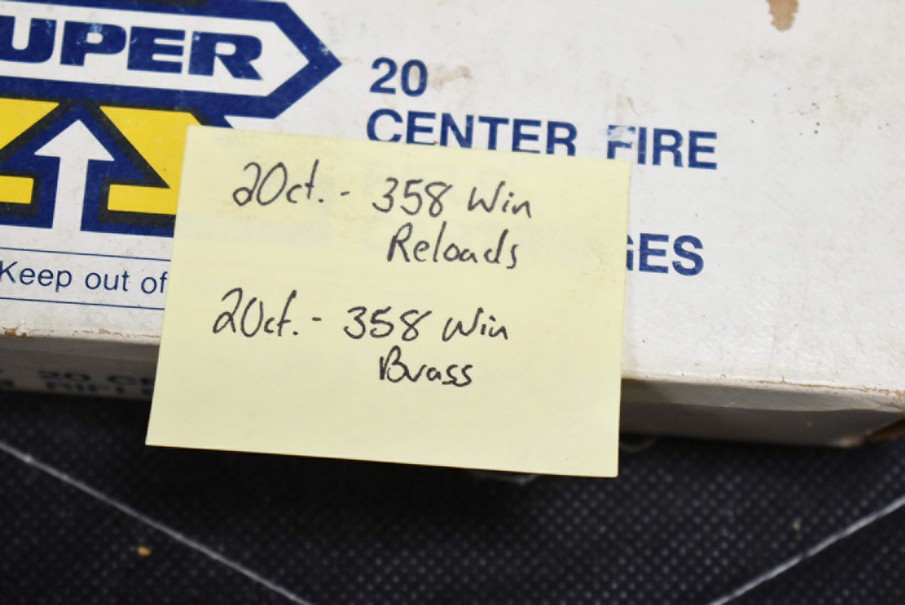 UPER
20
CENTER FIRE
GES
Keep out of
20ct. - 358 Win
Reloads
20ct. - 358 Win
Brass
20 CE